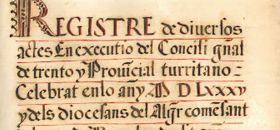 REGISTRE de diuersos
actes En executio del Concili gñal
de trento y Prouĩcial turritano
Celebrat en lo any M D Lxxxv
y dels diocesans del Algr comẽsant